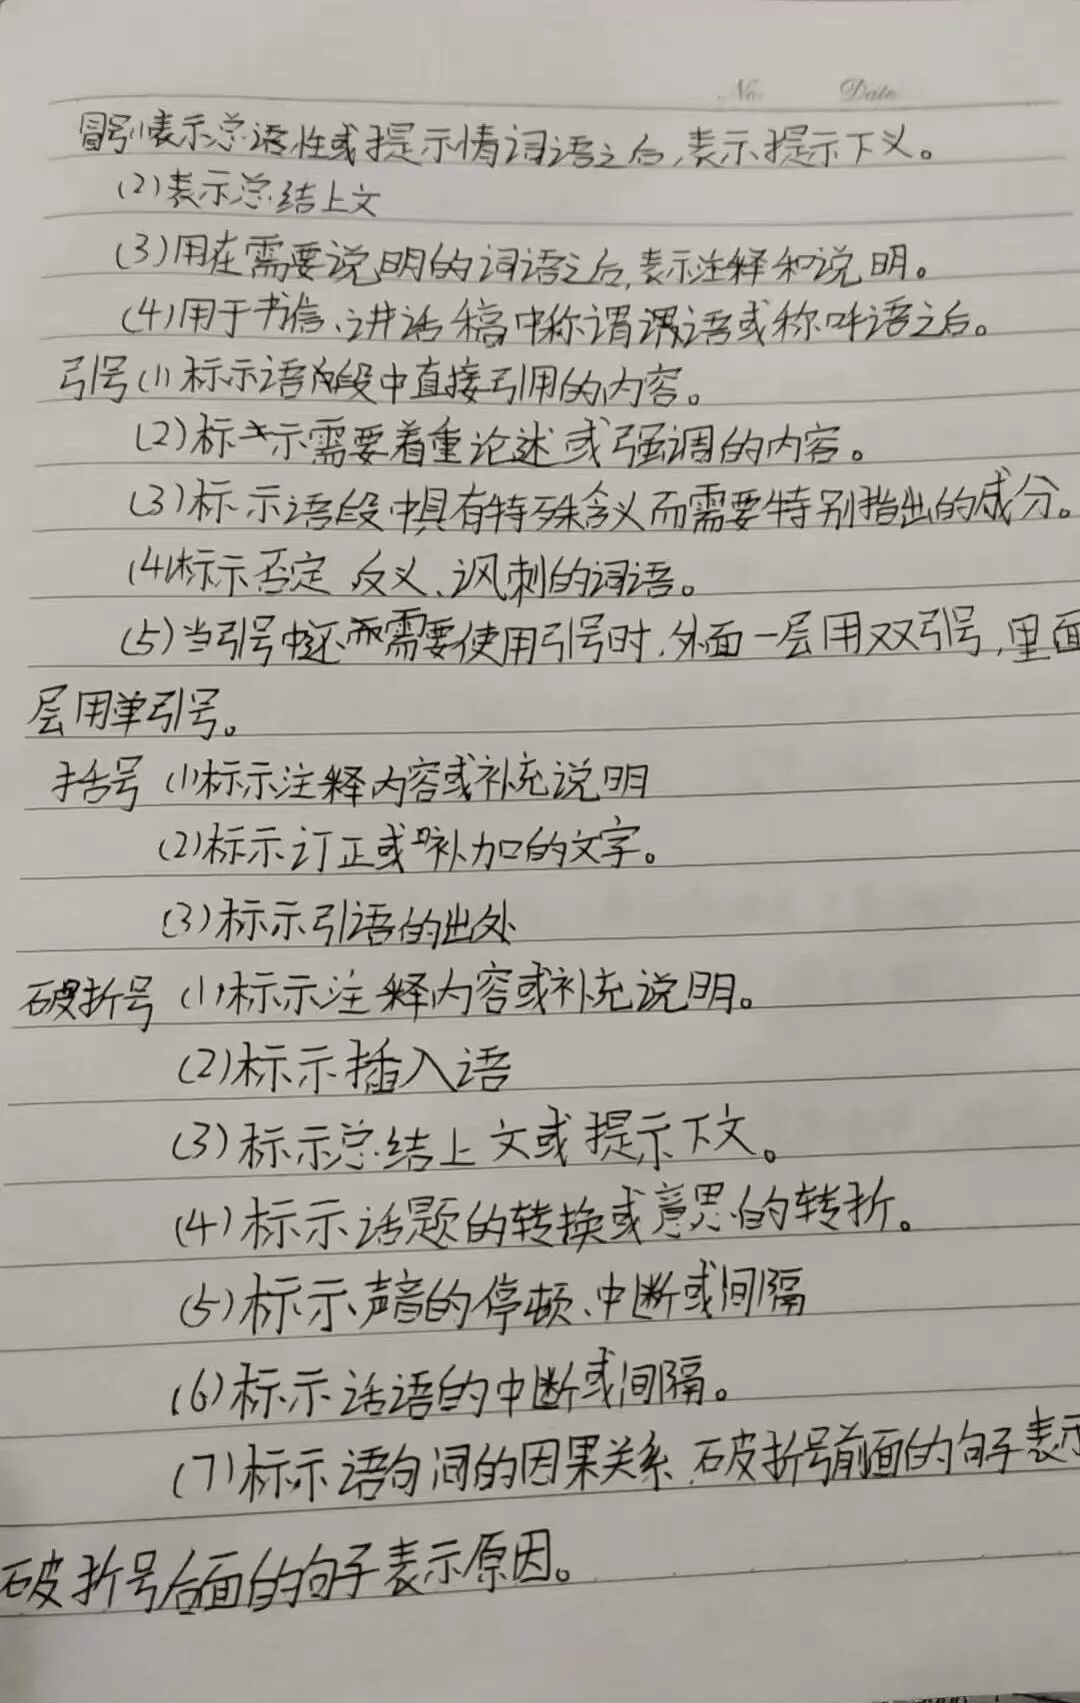 No. Date
冒号(1)表示总语性或提示情词语之后,表示提示下义。
(2)表示总结上文
(3)用在需要说明的词语之后,表示注释和说明。
(4)用于书信、讲话稿中称谓语或称呼语之后。
引号(1)标示语段中直接引用的内容。
(2)标示需要着重论述或强调的内容。
(3)标示语段中具有特殊含义而需要特别指出的成分。
(4)标示否定、反义、讽刺的词语。
(5)当引号中还需要使用引号时,外面一层用双引号,里面
层用单引号。
括号 (1)标示注释内容或补充说明
(2)标示订正或补加的文字。
(3)标示引语的出处
破折号 (1)标示注释内容或补充说明。
(2)标示插入语
(3)标示总结上文或提示下文。
(4)标示话题的转换或意思的转折。
(5)标示声音的停顿、中断或间隔
(6)标示话语的中断或间隔。
(7)标示语句间的因果关系,破折号前面的句子表示
破折号后面的句子表示原因。